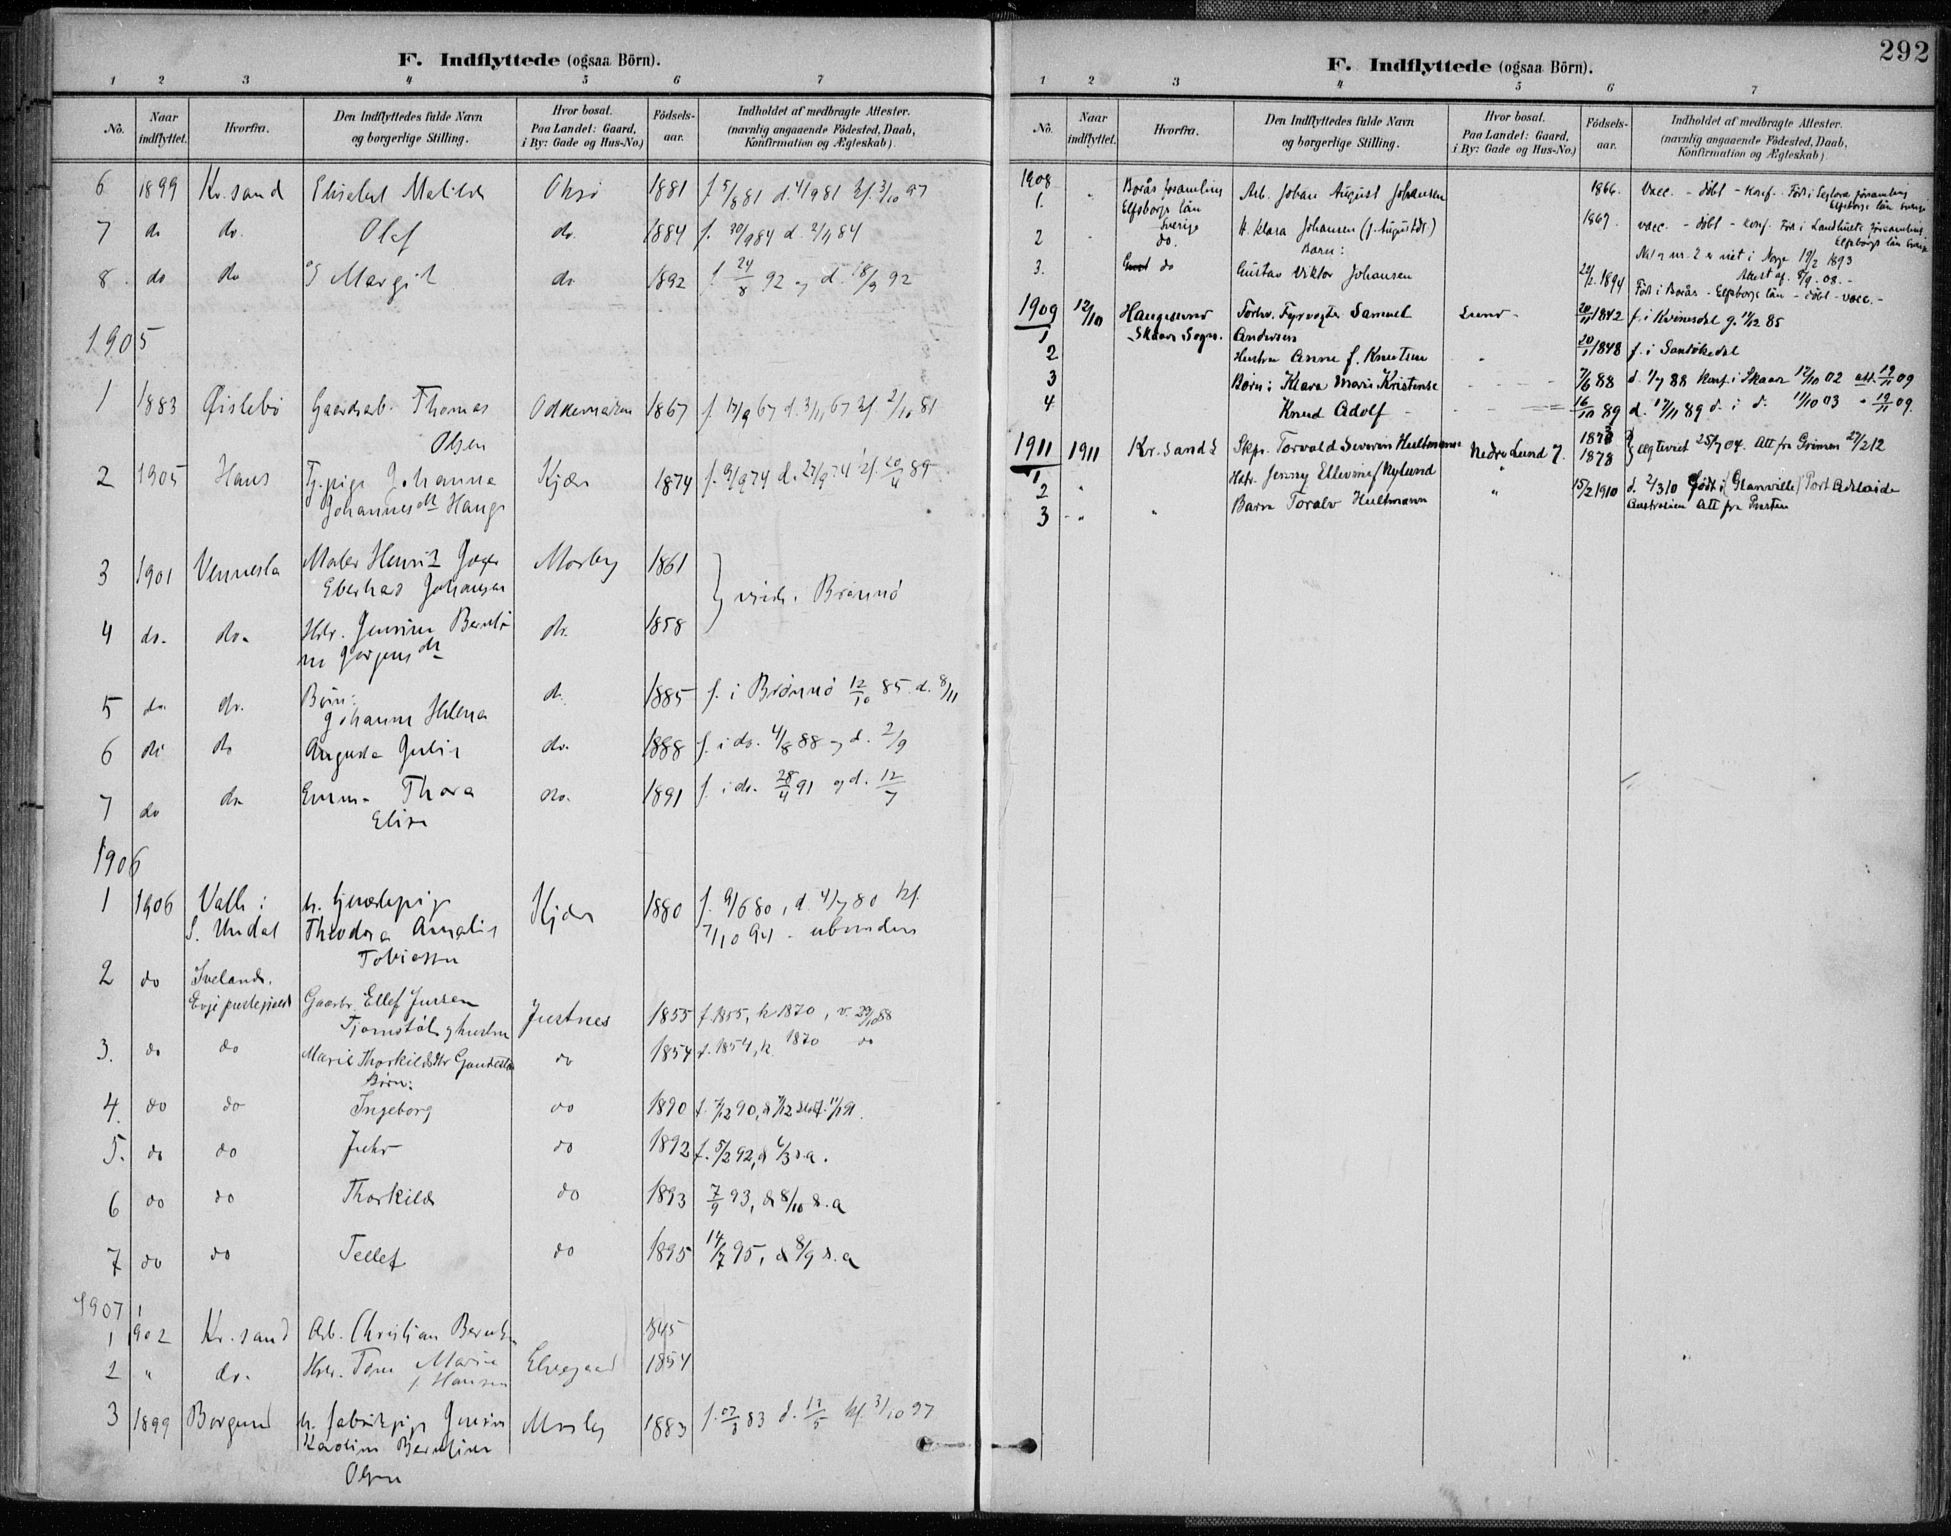 F. Indflyttede (ogsaa Börn).
1 2 3 4 5 6 7
No. Naar indflyttet. Hvorfra. Den Indflyttedes fulde Navn og borgerlige Stilling. Hvor bosat. Paa Landet: Gaard, i By: Gade og Hus-No.) Födsels-aar. Indholdet af medbragte Attester. (navnlig angaaende Födested, Daab, Konfirmation og Ægteskab)
6 1899 Kr.sand Elisabet Matilde Oksø 1881 f. 5/8 81 d. 4/9 81 kf. 3/10 97
7 do do. Olaf do. 1884 f. 30/9 84 d. 2/11 84
8. do do Margit do. 1892 f. 24/8 92 og d. 18/9 92
1905
1 1883 Øislebø Gaardsab. Thomas Oddemarken 1867
Olsen
2 1905 Haus Tj.pige Johanna Kjær 1874
Johannesdtr Hauge
3 1901 Vennesla Maler Henrik Mosby 1861
Eberhard Johansen
Brønnø
4 do. do. Hstr. Jensine do. 1858
5 do do. Børn: do. 1885 f. i Brønnø 12/10 85. d. 8/11
Johanne Helena
6 do do Augusta Julie do. 1888 f. i do. 4/8 88 og d. 2/9
7 do do Emma Thora do. 1891 f. i do. 28/4 91 og d. 12/7
Elise
1906
1 1906 Valle i Kjær 1880 f. 9/6 80, d. 4/7 80 kf.
S. Undal Theodora Amalie 7/10 94 -
Tobiassen
2 do Iveland,
Evje præstegjeld Gaardbr. Ellef Jensen Justnes 1855 f. 1855, k 1870, v. 29/10 88
3. do do Marie Thorkildsdtr do 1854 f. 1854, k. 1870 do
Børn:
4. do do Ingeborg do 1890
5. do do do 1892 f. 5/2 92, d 6/3 s.a.
6 do do Thorkild do 1893 7/9 93, d 8/10 s.a
7 do do Tellef do 1895 14/7 95, d 8/9 s.a
1907
1 1902 Kr.sand Arb. Christian 1845
2 " do. Hstr. Marie Elvegaard 1854
f. Hansen
3 1899 Borgund Mosby 1883 kf. 3/10 97
Karoline
Olsen
292
F. Indflyttede (ogsaa Börn).
1 2 3 4 5 6 7
No. Naar indflyttet. Hvorfra. Den Indflyttedes fulde Navn og borgerlige Stilling. Hvor bosat. Paa Landet: Gaard, i By: Gade og Hus-No.) Födsels-aar. Indholdet af medbragte Attester. (navnlig angaaende Födested, Daab, Konfirmation og Ægteskab)
1908
1. " Borås församling Arb. Johan August Johansen 1866. Vacc. - döbt - konf. Född i församling
Elfsborgs län Elfsborgs län Sverige
Sverige
2 do. H. Klara Johansen (f. Augustdt.) 1869. vacc. - döbt - konf. Född i församling
Barn: Elfsborgs län Sverige
No 1 og nr. 2 er viet i Norge 19/2 1893
3. do Gustav Viktor Johansen 1894 Attest af 8/9 - 08. -
Född i Borås - Elfsborgs län - döbt - vacc. -
1909 12/10 Haugesund Forhv. Fyrvogter Samuel Lund - 20/11 1842 f. i Kvinesdal
1 Skaare Sogn. Andersen
2 Hustru Anne f. Knutsen " 20/1 1848 f. i
3 Børn: Klara Marie Kristense 7/6 88 d. 1/7 88 konf. i Skaare 12/10 02 att. 19/11 09
4 Knud Adolf - 16/10 89 d. 17/11 89 d. i d. 11/10 03 " 19/11 09.
1911 1911 Kr.sand S Skpr. Torvald Severin Hultmann Nedre Lund 7. 1873 Ægteviet 25/7 04. Att fra Grimen 27/2 12
1 1878
2 " Hstr. Jenny f. Nylund "
3 " " Barn Toralv Hultmann " 15/2 1910 d. 2/3 10 Født i (Glanville) Port Adelaide
Australien Att fra Presten